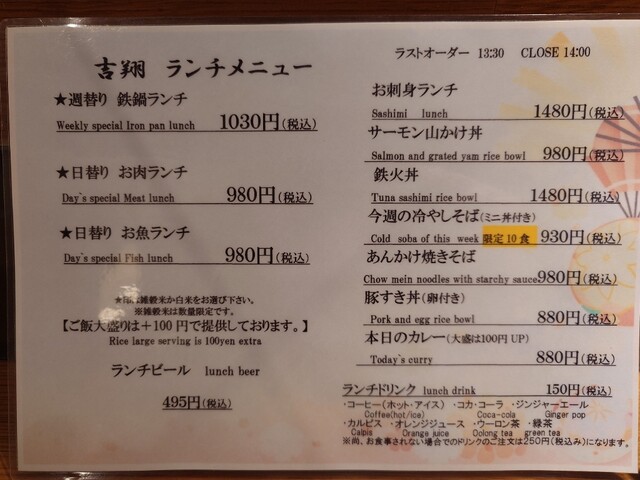 吉翔 ランチメニュー
★週替り 鉄鍋ランチ
Weekly special Iron pan lunch 1030円(税込)
★日替り お肉ランチ
Day`s special Meat lunch 980円(税込)
★日替り お魚ランチ
Day`s special Fish lunch 980円(税込)
★印は雑穀米か白米をお選び下さい。
※雑穀米は数量限定です。
【ご飯大盛りは＋100円で提供しております。】
Rice large serving is 100yen extra
ランチビール lunch beer
495円(税込)
ラストオーダー 13:30 CLOSE 14:00
お刺身ランチ
Sashimi lunch 1480円(税込)
サーモン山かけ丼
Salmon and grated yam rice bowl 980円(税込)
鉄火丼
Tuna sashimi rice bowl 1480円(税込)
今週の冷やしそば(ミニ丼付き)
Cold soba of this week 限定10食 930円(税込)
あんかけ焼きそば
Chow mein noodles with starchy sauce 980円(税込)
豚すき丼(卵付き)
Pork and egg rice bowl 880円(税込)
本日のカレー(大盛は100円UP)
Today`s curry 880円(税込)
ランチドリンク lunch drink 150円(税込)
・コーヒー(ホット・アイス) ・コカ・コーラ ・ジンジャーエール
Coffee(hot/ice) Coca-cola Ginger pop
・カルピス ・オレンジジュース ・ウーロン茶 ・緑茶
Calpis Orange juice Oolong tea green tea
※尚、お食事されない場合でのドリンクのご注文は250円(税込み)になります。